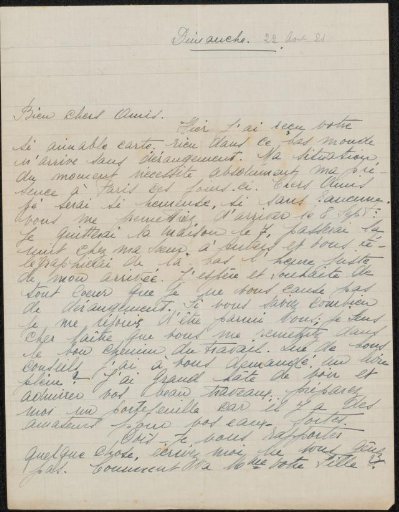 Dimanche. 22
Bien chers Amis.
Hier j'ai reçu votre
si aimable carte. rien dans ce bas monde
n'arrive sans dérangement. Ma situation
du moment nécessite absolument ma pré-
sence à Paris ces jours-ci. Chers Amis
je serai si heureuse, si sans
vous me permettiez d'arriver le 8 Sept:
Je quitterai la maison le 7, passerai la
nuit chez ma Sœur à Anvers et vous té-
legraphierai de là-bas l'heure juste
de mon arrivée. J'espère et souhaite de
tout cœur que je ne vous cause pas
de dérangement. Si vous saviez combien
je me réjouis d'être parmi vous; je
cher Maître que vous me remettrez dans
le bon chemin du travail. Que de bons
conseils j'ai à vous demander un livre
plein! J'ai grand hâte de voir et
admirer vos beaux travaux. préparez
moi un portefeuille car il y a des
amateurs pour vos eaux-fortes.
Dois-je vous rapporter
quelque chose, écrivez moi ne vous gênez
pas. Comment va Mme votre fille?